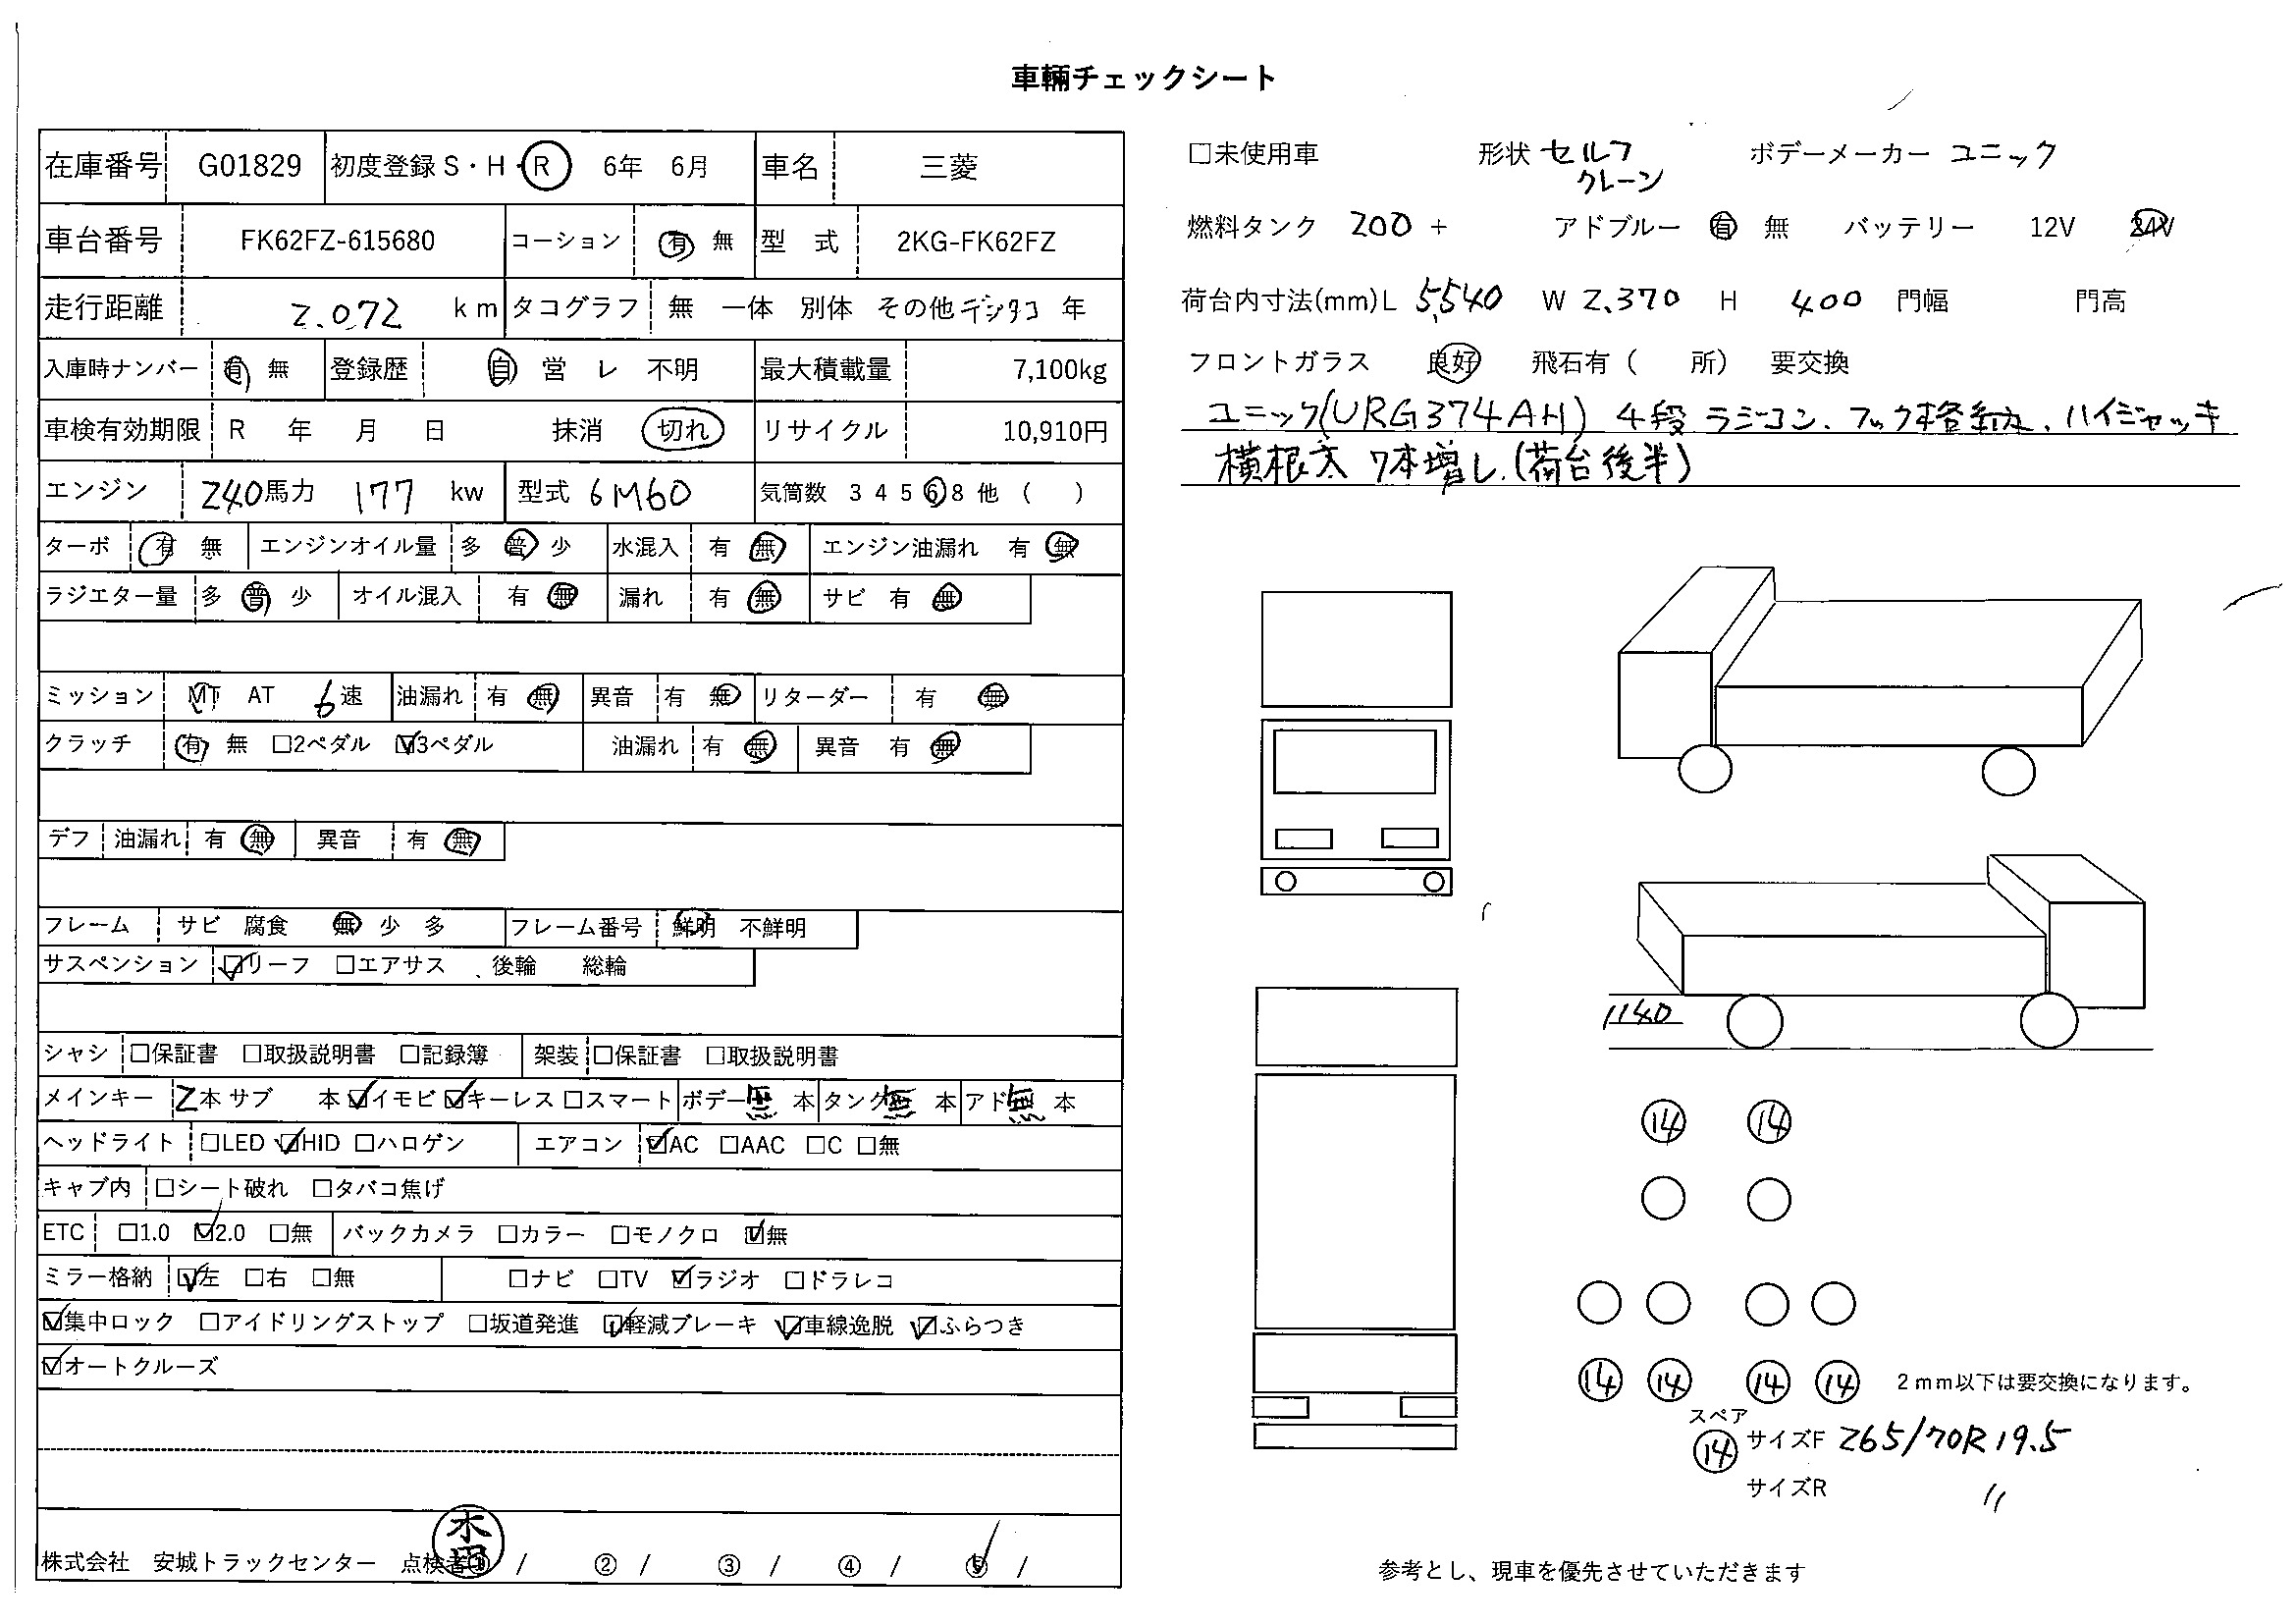 車輛チェックシート
在庫番号 G01829 初度登録 S・H・R 6年 6月 車名 三菱
車台番号 FK62FZ-615680 コーション 有 無 型 式 2KG-FK62FZ
走行距離 2.072 km タコグラフ 無 一体 別体 その他 デジタコ 年
入庫時ナンバー 有 無 登録歴 自 営 レ 不明 最大積載量 7,100kg
車検有効期限 R 年 月 日 抹消 切れ リサイクル 10,910円
エンジン 240馬力 177 kw 型式 6M60 気筒数 3 4 5 6 8 他 ( )
ターボ 有 無 エンジンオイル量 多 普 少 水混入 有 無 エンジン油漏れ 有 無
ラジエター量 多 普 少 オイル混入 有 無 漏れ 有 無 サビ 有 無
ミッション MT AT 6速 油漏れ 有 無 異音 有 無 リターダー 有 無
クラッチ 有 無 □2ペダル ☑3ペダル 油漏れ 有 無 異音 有 無
デフ 油漏れ 有 無 異音 有 無
フレーム サビ 腐食 無 少 多 フレーム番号 鮮明 不鮮明
サスペンション ☑リーフ □エアサス 後輪 総輪
シャシ □保証書 □取扱説明書 □記録簿 架装 □保証書 □取扱説明書
メインキー 2本 サブ 本 ☑イモビ ☑キーレス □スマート ボデー 無 本 タンク 無 本 アド 無 本
ヘッドライト □LED ☑HID □ハロゲン エアコン ☑AC □AAC □C □無
キャブ内 □シート破れ □タバコ焦げ
ETC □1.0 ☑2.0 □無 バックカメラ □カラー □モノクロ ☑無
ミラー格納 ☑左 □右 □無 □ナビ □TV ☑ラジオ □ドラレコ
☑集中ロック □アイドリングストップ □坂道発進 ☑軽減ブレーキ ☑車線逸脱 ☑ふらつき
☑オートクルーズ
株式会社 安城トラックセンター 点検者① / ② / ③ / ④ / ⑤ /
□未使用車 形状 セルフ クレーン ボデーメーカー ユニック
燃料タンク 200 + アドブルー 有 無 バッテリー 12V 24V
荷台内寸法(mm) L 5,540 W 2,370 H 400 門幅 門高
フロントガラス 良好 飛石有 ( 所) 要交換
ユニック(URG374AH) 4段 ラジコン、フック格納、ハイジャッキ
横根太 7本増し.(荷台後半)
1140
14 14
14 14 14 14 2mm以下は要交換になります。
スペア
14 サイズF 265/70R19.5
サイズR 〃
参考とし、現車を優先させていただきます